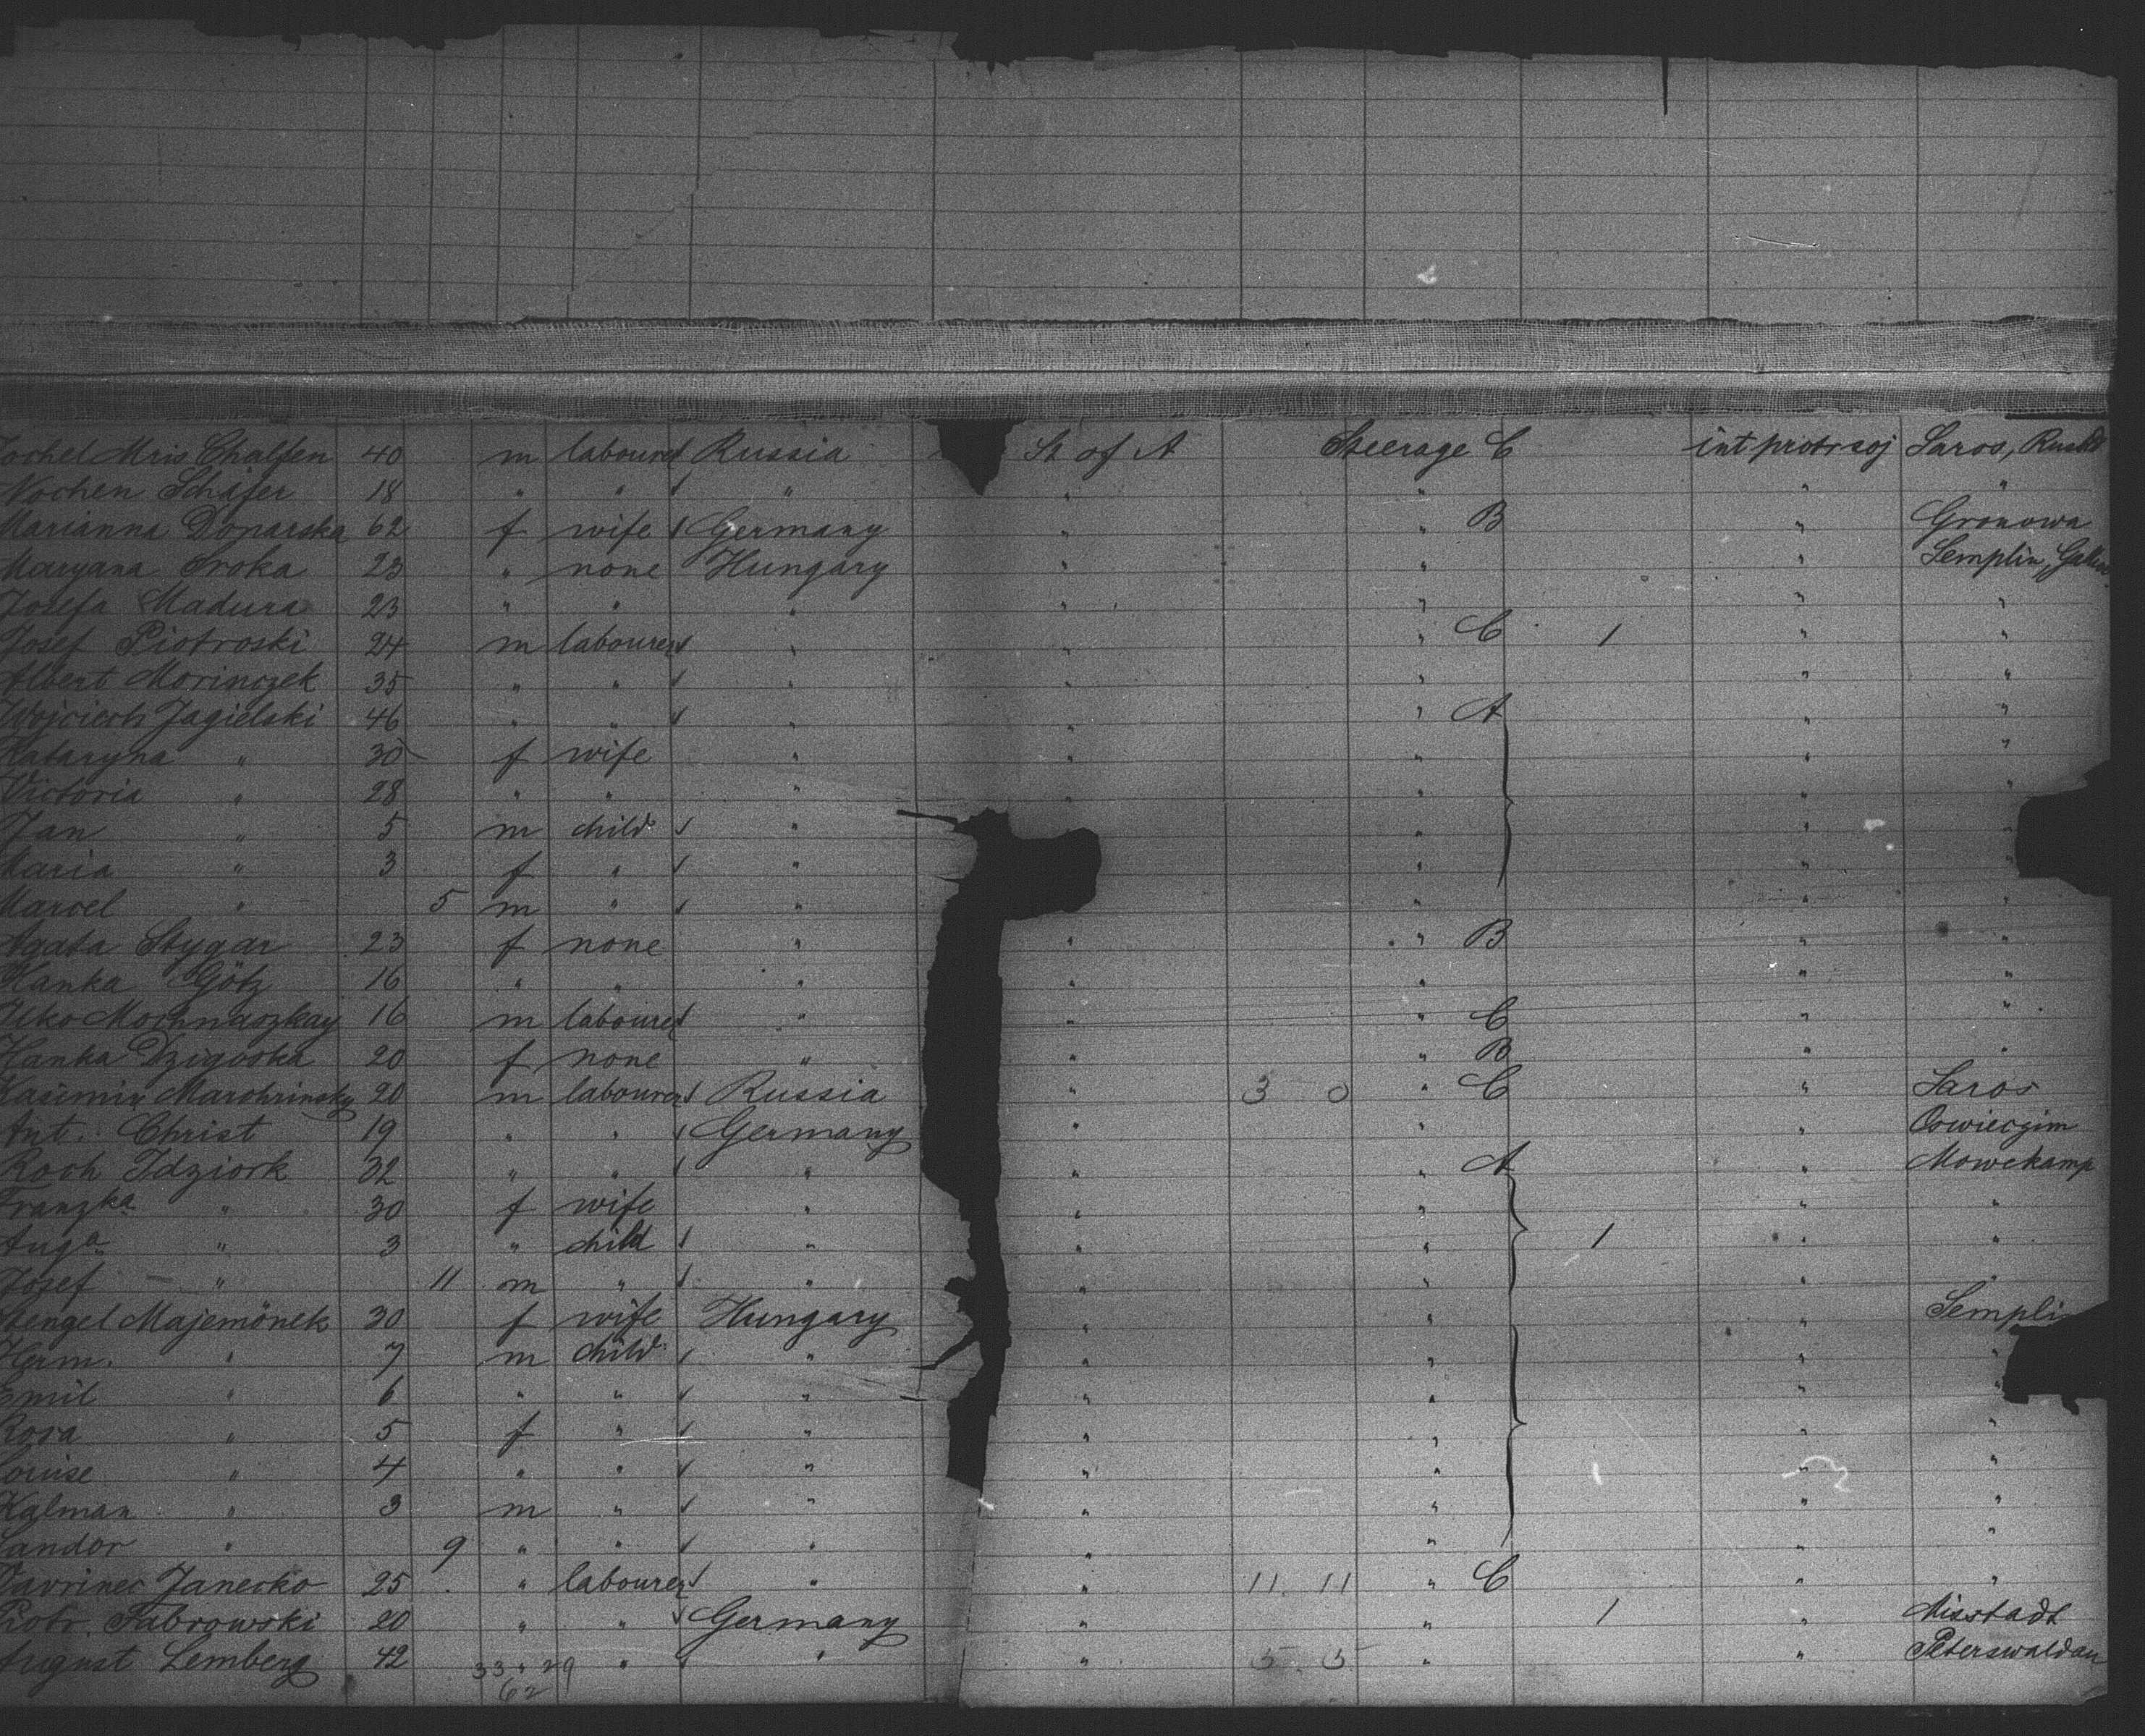 Mris Chalfen 40 m labourer Russia St of A Steerage C int protr soj Saros, Russld
Nochen Schäfer 18 " " " " " " "
Marianna Donarska 62 f wife Germany " " B " Gronowa
Maryana Sroka 23 " none Hungary " " " Semplin,
Josefa Madura 23 " " " " " " "
Josef Piotroski 24 m labourer " " " C 1 " "
Albert Morinczek 35 " " " " " " "
Wojciech Jagielski 46 " " " " " A " "
Kataryna " 30 f wife " " " "
Victoria " 28 " " " " " " "
Jan " 5 m child " " " "
Maria " 3 f " " " " "
Marcel " 5 m " " " " "
Agata Stygar 23 f none " " " B " "
Hanka Götz 16 " " " " " " "
Mochnaczkay 16 m labourer " " " C " "
Hanka Dzigoska 20 f none " " " B " "
Kasimir Marchrinsky 20 m labourer Russia " 3 0 " C " Saros
Ant. Christ 19 " " Germany " " " Oswieczim
Roch Idziork 32 " " " " " A " Mowekamp
Franzka " 30 f wife " " " " "
Auga " 3 " child " " " 1 " "
Josef " 11 m " " " " " "
Stengel Majemönek 30 f wife Hungary " " " Semplin
Herm. " 7 m child " " " " "
Emil " 6 " " " " " " "
Rosa " 5 f " " " " " "
Louise " 4 " " " " " " "
Kalman " 3 m " " " " " "
Sandor " 9 " " " " " " "
Janecko 25 " labourer " " 11 11 " C " "
Piotr. Fabrowski 20 " " Germany " " 1 " Misstadt
August Lemberg 42 " " " " 5 5 " " Peterswaldau
33 29
62